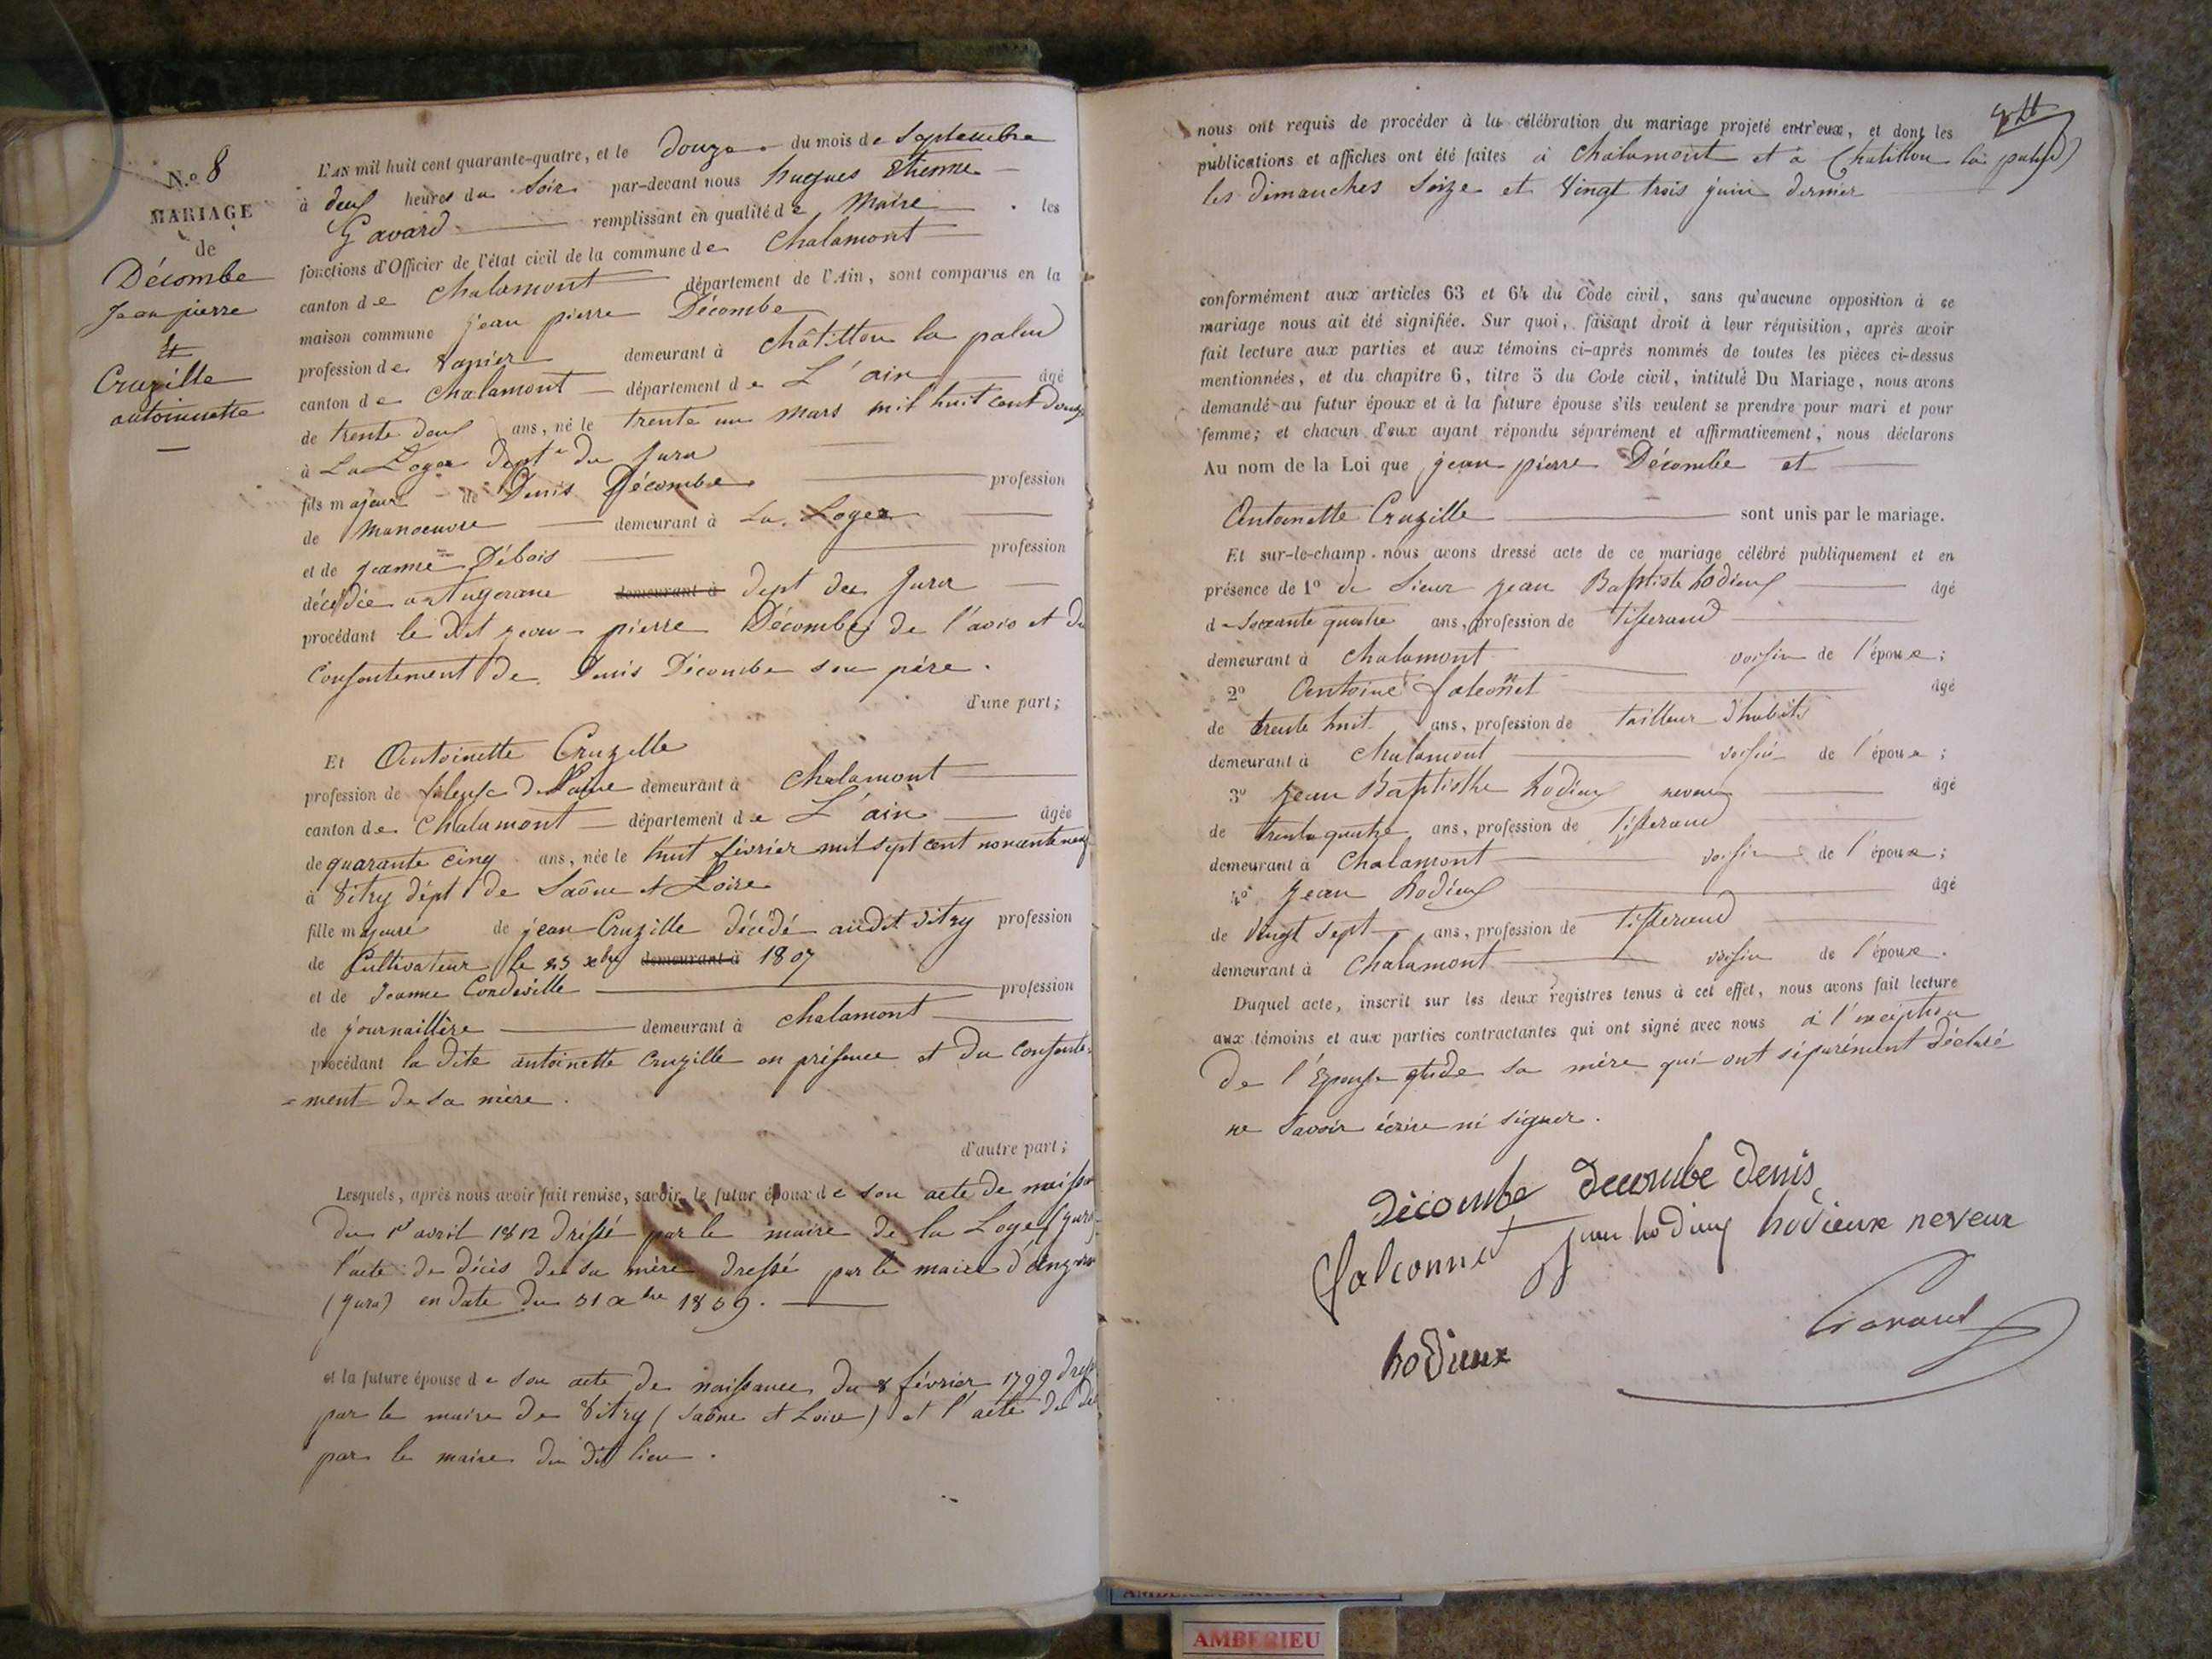 N.o 8
MARIAGE
de
Décombe
Jean pierre
et
Cruzille
antoinette
L'AN mil huit cent quarante-quatre, et le douze du mois de Septembre
à deux heures du Soir par-devant nous hugues Etienne
Gavard remplissant en qualité de Maire les
fonctions d'Officier de l'état civil de la commune de Chalamont
canton de Chalamont département de l'Ain, sont comparus en la
maison commune jean pierre Décombe
profession de demeurant à Châtillon la palud
canton de Chalamont département de L'ain âgé
de trente deux ans, né le trente un mars mil huit cent douze
à La Loye Dept du Jura
fils majeur de Denis Décombe profession
de Manoeuvre demeurant à La Loye
et de jeanne Débois profession
décédée demeurant à dept du Jura
procédant le dit jean pierre Décombe de l'avis et du
Consentement de Denis Décombe son père.
d'une part;
Et Antoinette Cruzille
profession de fileuse de laine demeurant à Chalamont
canton de Chalamont département de L'ain âgée
de quarante cinq ans, née le huit février mil sept cent nonante neuf
à Vitry dépt de Saône et Loire
fille majeure de jean Cruzille décédé audit Vitry profession
de Cultivateur le 23 xbre demeurant à 1807
et de Jeanne Condeville profession
de journaillère demeurant à Chalamont
procédant la dite antoinette Cruzille en présence et du consente=
=ment de sa mère.
d'autre part;
Lesquels, après nous avoir fait remise, savoir le futur époux de son acte de naissa
du 1er avril 1812 dressé par le maire de la Loye (jura)
l'acte de décès de sa mère dressé par le maire
(jura) en date du 31 xbre 1839.
et la future épouse de son acte de naissance du 8 février 1799 dressé
par le maire de Vitry (Saône et Loire) et l'acte de
par le maire du dit lieu.
nous ont requis de procéder à la célébration du mariage projeté entr'eux, et dont les
publications et affiches ont été faites à Chalamont et à Chatillon la palud
les dimanches Seize et Vingt trois juin dernier
conformément aux articles 63 et 64 du Code civil, sans qu'aucune opposition à ce
mariage nous ait été signifiée. Sur quoi, faisant droit à leur réquisition, après avoir
fait lecture aux parties et aux témoins ci-après nommés de toutes les pièces ci-dessus
mentionnées, et du chapitre 6, titre 5 du Code civil, intitulé Du Mariage, nous avons
demandé au futur époux et à la future épouse s'ils veulent se prendre pour mari et pour
femme; et chacun d'eux ayant répondu séparément et affirmativement, nous déclarons
Au nom de la Loi que jean pierre Décombe et
Antoinette Cruzille sont unis par le mariage.
Et sur-le-champ nous avons dressé acte de ce mariage célébré publiquement et en
présence de 1o de Sieur Jean Baptiste hodieux âgé
de Soixante quatre ans, profession de Tisserand
demeurant à Chalamont voisin de l'épouse;
2o Antoine falconnet âgé
de trente huit ans, profession de tailleur d'habits
demeurant à Chalamont voisin de l'épouse;
3o Jean Baptisthe hodieux neveu âgé
de trente quatre ans, profession de Tisserand
demeurant à Chalamont voisin de l'épouse;
4o Jean hodieux âgé
de Vingt Sept ans, profession de Tisserand
demeurant à Chalamont voisin de l'épouse.
Duquel acte, inscrit sur les deux registres tenus à cet effet, nous avons fait lecture
aux témoins et aux parties contractantes qui ont signé avec nous à l'exception
De l'Epouse et de sa mère qui ont séparément déclaré
ne Savoir écrire ni signer.
Décombe Decombe Denis
falconnet jean hodieux hodieux neveux
Gavard
hodieux
AMBERIEU